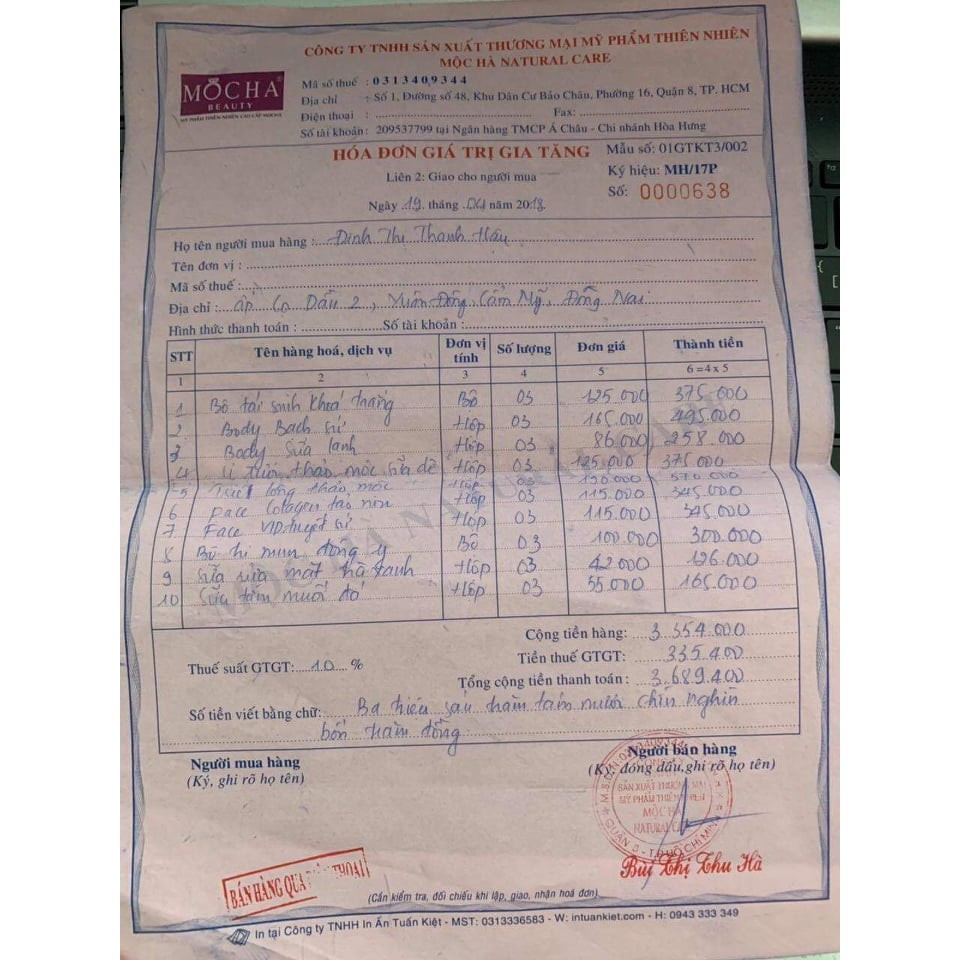 CÔNG TY TNHH SẢN XUẤT THƯƠNG MẠI MỸ PHẨM THIÊN NHIÊN
MỘC HÀ NATURAL CARE
MOCHA®
BEAUTY
MỸ PHẨM THIÊN NHIÊN CAO CẤP MOCHA
Mã số thuế : 0313409344
Địa chỉ : Số 1, Đường số 48, Khu Dân Cư Bảo Châu, Phường 16, Quận 8, TP. HCM
Điện thoại : Fax:
Số tài khoản: 209537799 tại Ngân hàng TMCP Á Châu - Chi nhánh Hòa Hưng
HÓA ĐƠN GIÁ TRỊ GIA TĂNG Mẫu số: 01GTKT3/002
Liên 2: Giao cho người mua Ký hiệu: MH/17P
Số: 0000638
Ngày 19 tháng 04 năm 2018
Họ tên người mua hàng : Đinh Thị Thanh Hậu
Tên đơn vị :
Mã số thuế :
Địa chỉ : ấp Cọ Dầu 2, Xuân Đông, Cẩm Mỹ, Đồng Nai
Hình thức thanh toán : Số tài khoản:
STT Tên hàng hoá, dịch vụ Đơn vị tính Số lượng Đơn giá Thành tiền
1 2 3 4 5 6 =4 x 5
1 Bộ tái sinh khoá trắng Bộ 03 125.000 375.000
2 Body Bạch sứ Hộp 03 165.000 495.000
3 Body Sữa lạnh Hộp 03 86.000 258.000
4 thảo mộc sữa dê Hộp 03 125.000 375.000
5 Triệt lông thảo mộc Hộp 03 190.000 570.000
6 Face Colagen tảo non Hộp 03 115.000 345.000
7 Face VIP tuyết sứ Hộp 03 115.000 345.000
8 Bộ trị mụn đông y Bộ 03 100.000 300.000
9 Sữa rửa mặt trà xanh Hộp 03 42.000 126.000
10 Sữa tắm muối đỏ Hộp 03 55.000 165.000
Cộng tiền hàng: 3.354.000
Thuế suất GTGT: 10 % Tiền thuế GTGT: 335.400
Tổng cộng tiền thanh toán : 3.689.400
Số tiền viết bằng chữ: Ba triệu sáu trăm tám mươi chín nghìn
bốn trăm đồng
Người mua hàng Người bán hàng
(Ký, ghi rõ họ tên) (Ký, đóng dấu, ghi rõ họ tên)
SẢN XUẤT THƯƠNG MẠI
MỸ PHẨM THIÊN NHIÊN
MỘC HÀ
NATURAL CARE
QUẬN 8 - T.P HỒ CHÍ MINH
Bùi Thị Thu Hà
BÁN HÀNG QUA ĐIỆN THOẠI
(Cần kiểm tra, đối chiếu khi lập, giao, nhận hoá đơn)
In tại Công ty TNHH In Ấn Tuấn Kiệt - MST: 0313336583 - W: intuankiet.com - H: 0943 333 349